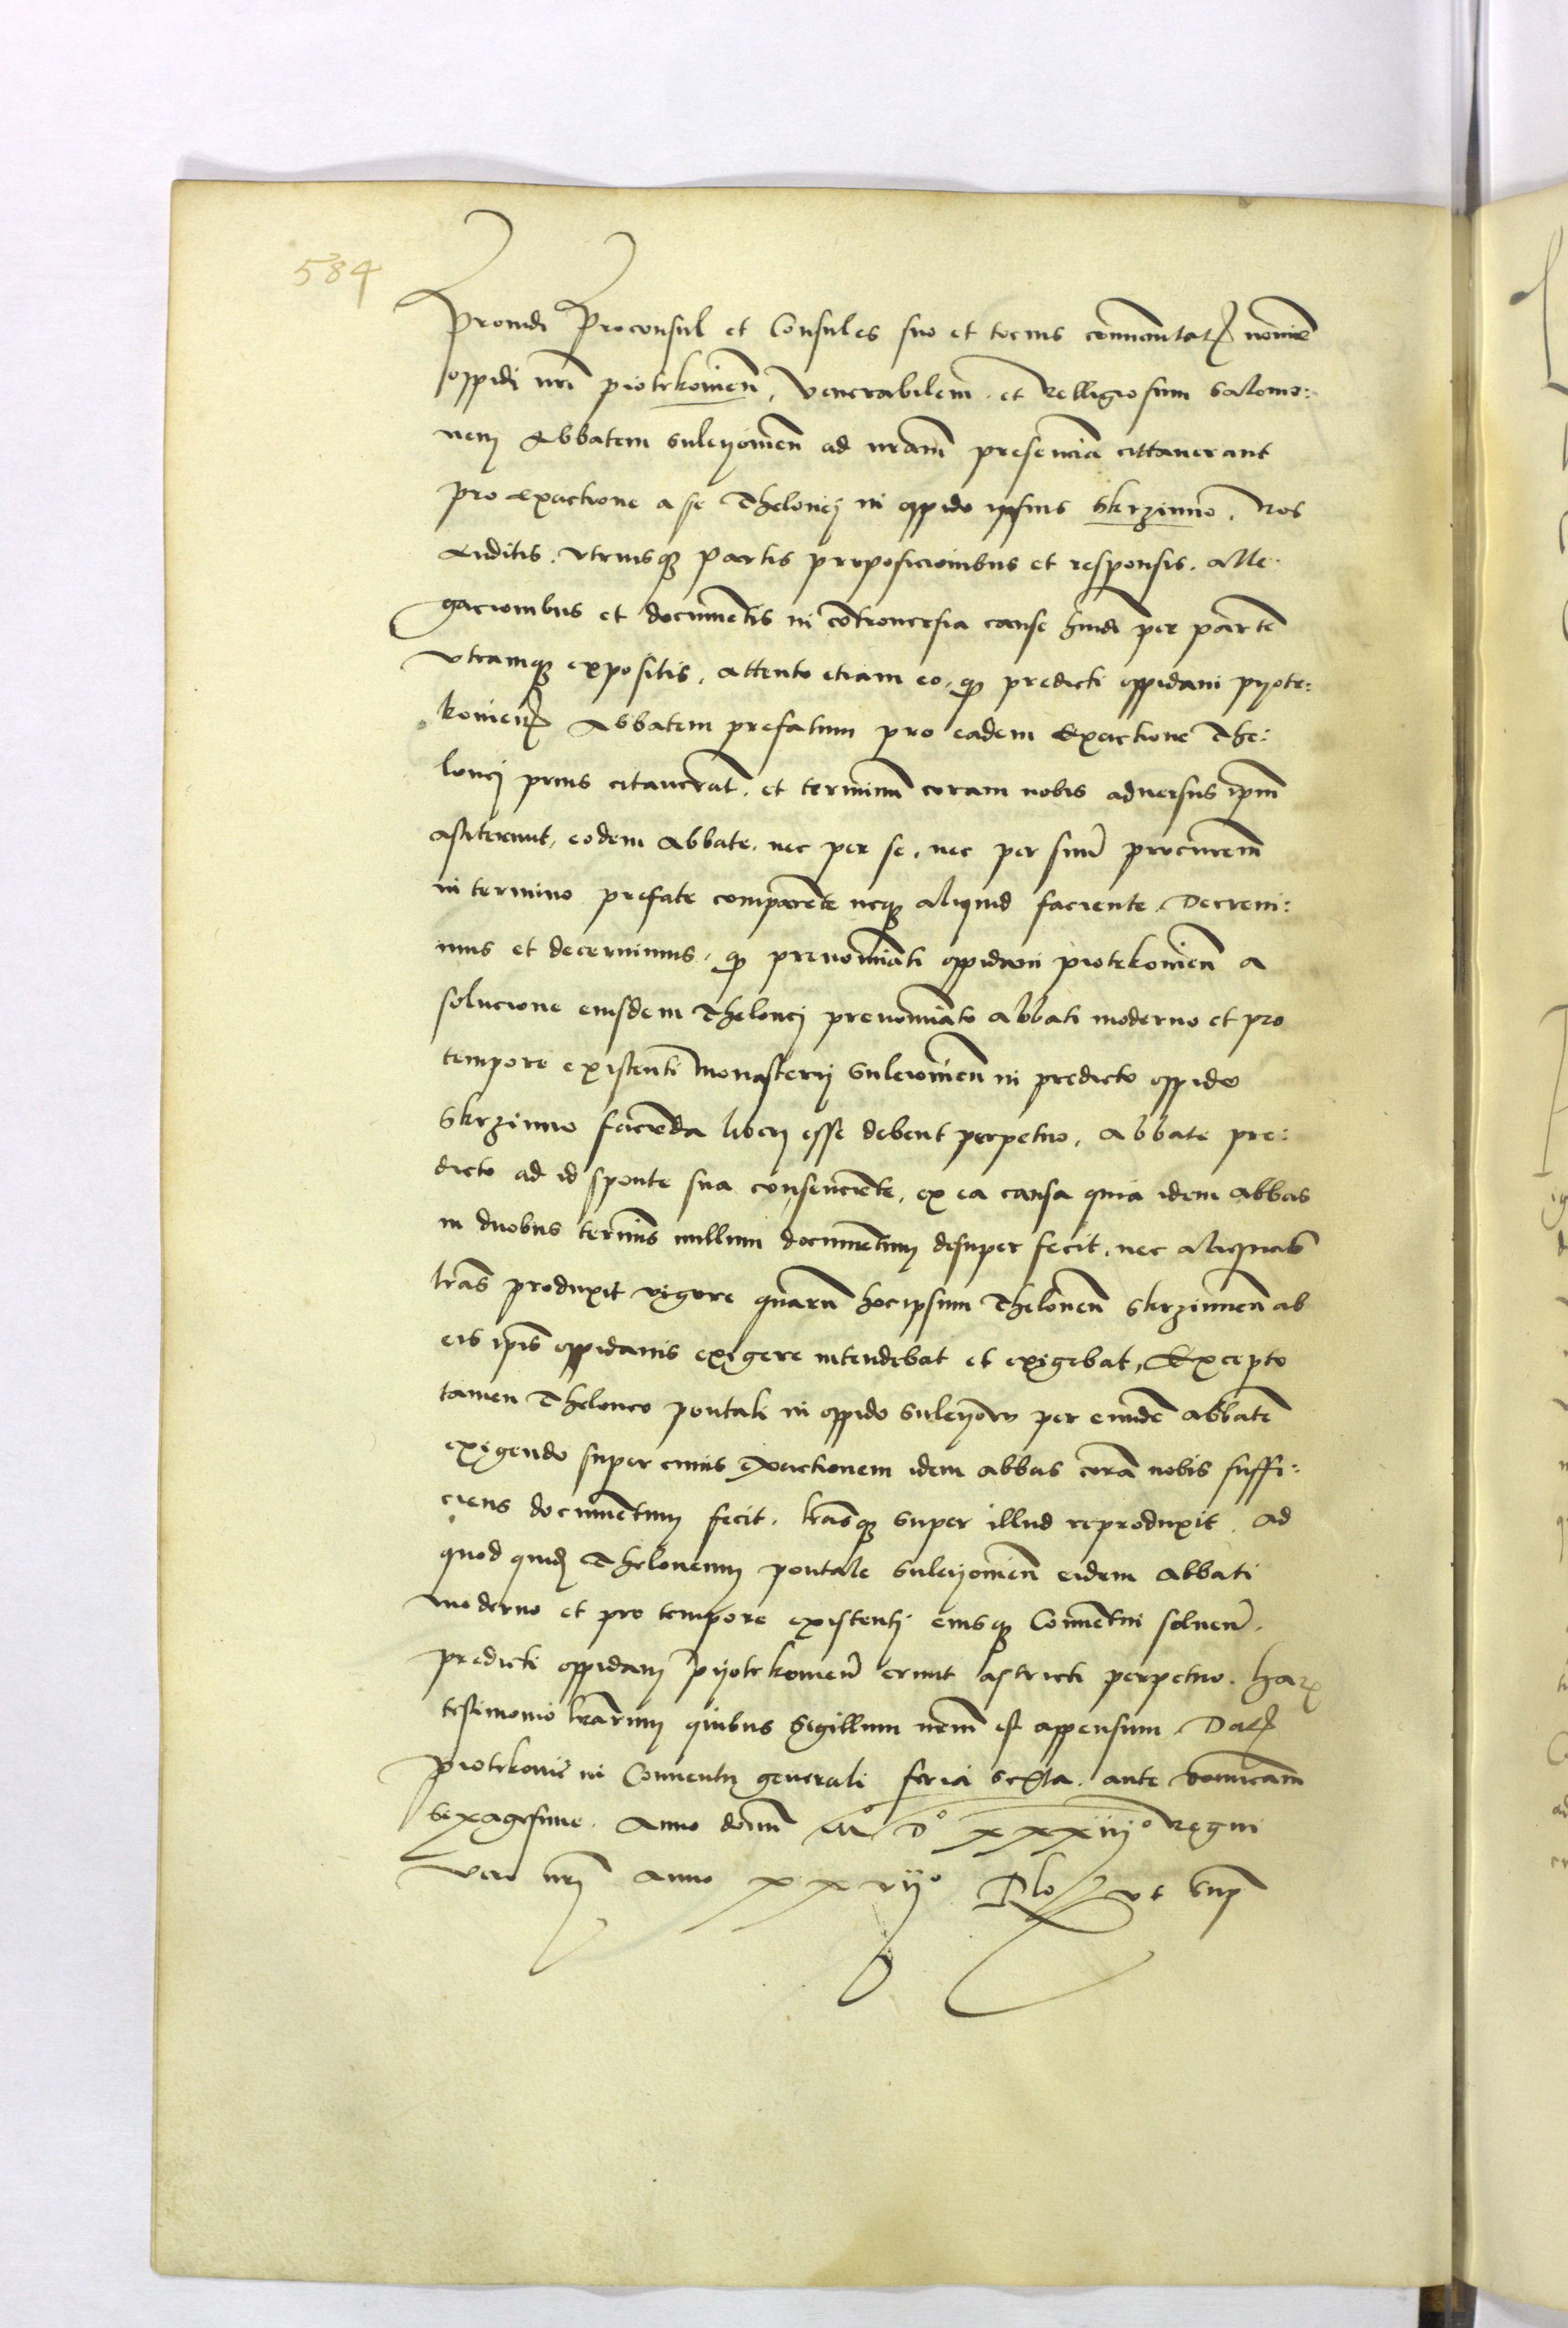 584
Prouidi Proconsul et Consules suo et tocius com̄unitat nomīe
oppidi nrī piotrkouien̄, Venerabilem et Relligiosum Salomo:
nem Abbatem Suleyouien̄ ad nrām presenciā cittauerant
pro exactione a se Thelonej in oppido ipsius Skrzinno. Nos
Auditis vtriusq̄ partis proposicionibus et responsis. Alle
gacionibus et documētis in cōtrouersia cause hmōi per partē
vtramq̄ expositis, attento etiam eo, qͦ predicti oppidani pyotr:
kouien̄ Abbatem prefatum pro eadem Exactione The:
lonej prius citauerāt, et terminū coram nobis aduersus ipm̄
astiterunt, eodem Abbate, nec per se, nec per suum̄ procurem̄
in termino prefato comparētē neq̄ aliquid faciente Decreui:
mus et decernimus, qͦ prenomīati oppidani piotrkouien̄ a
solucione eiusdem Thelonej prenomīato abbati moderno et pro
tempore existenti monasterij Suleiouien̄ in predicto oppido
Skrzinno faciēda liberj esse debent perpetuo, Abbate pre:
dicto ad id sponte sua consenciēte, ex ea causa quia idem abbas
in duobus terminīs nullum documētum desuper fecit, nec aliquas
lrās produxit vigore quarū hocipsum Theloneū Skrzinnen̄ ab
eis ipīs oppidanis exigere intendebat et exigebat, Excepto
tamen Theloneo pontali in oppido Suleyow per eundē abbatē
exigendo super cuius exactionem idem abbas corā nobis suffi:
ciens documētum fecit, lrāsq̄ super illud reproduxit. Ad
quod quidē Theloneum pontale Suleyouien̄ eidem Abbati
moderno et pro tempore existentj eiusq̄ Conuētui soluen̄.
predicti oppidanj pyotrkouien̄ erunt astricti perpetuo. Har
testimonio lrārum quibus Sigillum nrm̄ est appensum. Dat
Piotrkouie in Conuentu generali feria sexta. ante domīcam
Sexagesime. Anno domī Mͦ Dͦ xxxiijͦ Regni
vero nrj anno xxvijͦ Rlo vt supͣ